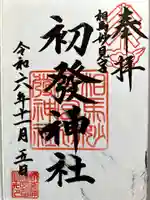 奉拝
相馬妙見宮
初發神社
令和六年十一月五日